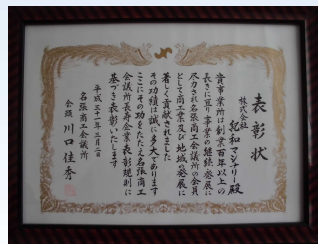 表彰状
株式会社
紀和マシナリー殿
貴事業所は創業百年以上の
長きに亘り事業の継続・発展に
尽力され名張商工会議所の会員
として商工業及び地域の発展に
著しく貢献されました
その功績は誠に多大であります
ここにその功をたたえ名張商工
会議所長寿企業表彰規則に
基づき表彰いたします
平成三十一年
名張商工会議所
会頭 川口佳秀